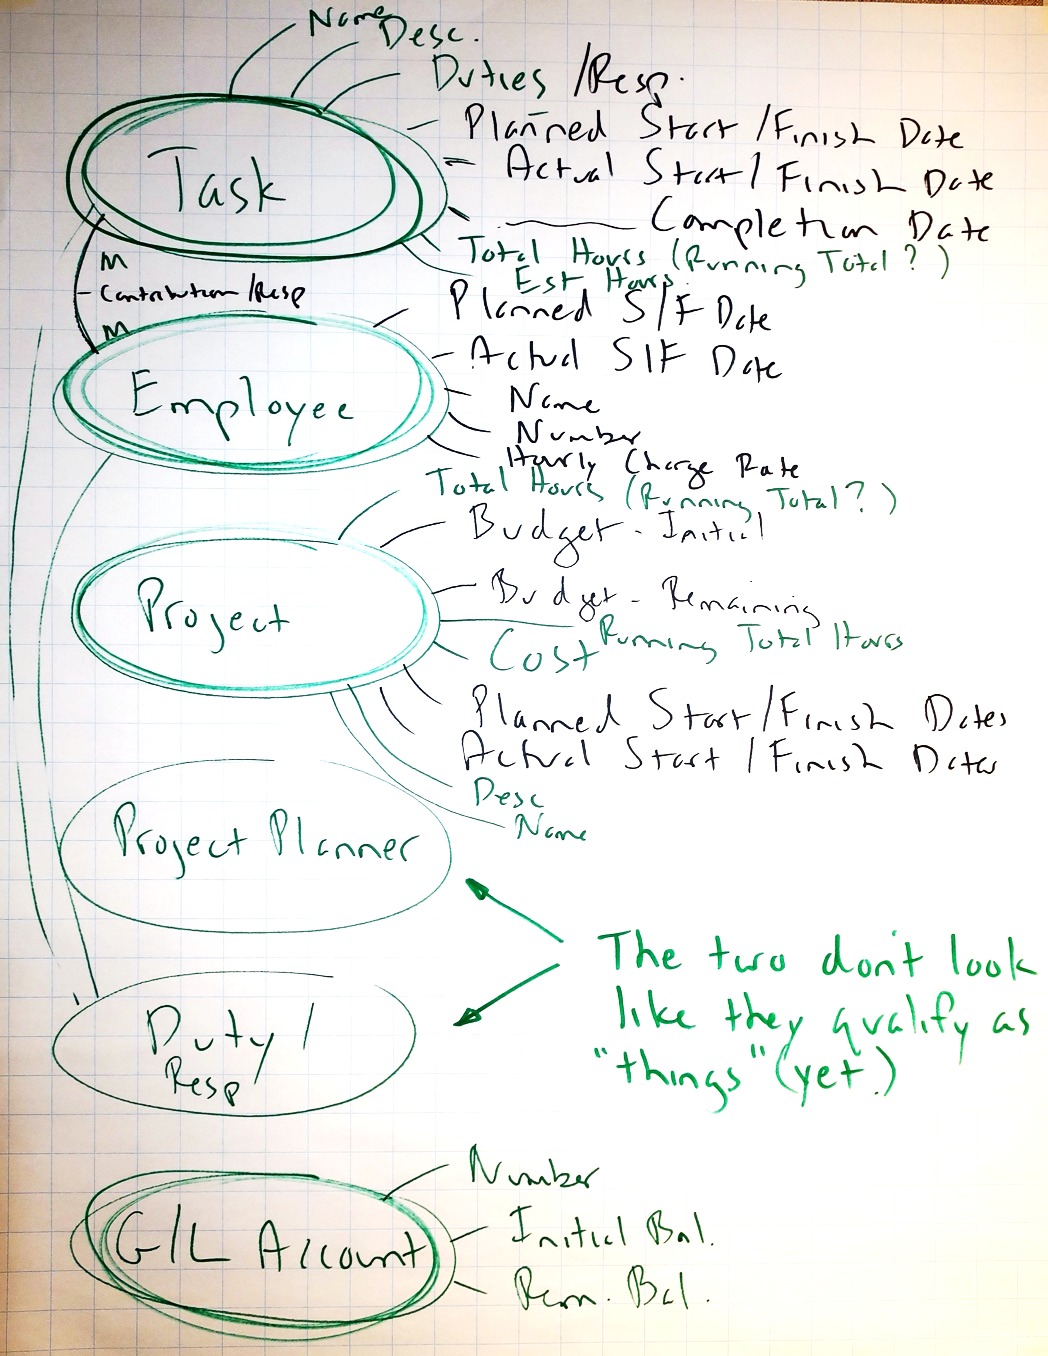 Name
Desc.
Duties /Resp.
Planned Start /Finish Date
Task
Actual Start / Finish Date
Completion Date
Total Hours (Running Total?)
M
Est Hours
Contribution /Resp
Planned S/F Date
M
Actual S/F Date
Employee
Name
Number
Hourly Charge Rate
Total Hours (Running Total?)
Budget - Initial
Project
Budget - Remaining
Running Total Hours
Cost
Planned Start /Finish Dates
Actual Start /Finish Dates
Desc
Name
Project Planner
The two don't look
like they qualify as
"things" (yet.)
Duty /
Resp
Number
G/L Account
Initial Bal.
Rem. Bal.